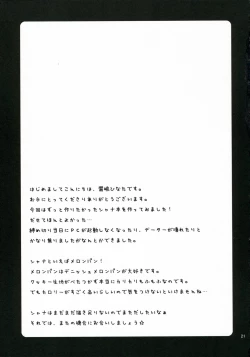 はじめましてこんにちは、鳴嶋ひなたです。
お手にとってくださりありがとうございます。
今回はずっと作りたかったシャナ本を作ってみました！
だせてほんとよかった…
締め切り当日にPCが起動しなくなったり、データーが壊れたりと
かなり焦りましたがなんとかできました。
シャナといえばメロンパン！
メロンパンはデニッシュメロンパンが大好きです。
クッキー生地がぱりぱりで中はふわふわなのです。
でもカロリーがすごくあるらしいので気をつけないといけませんね…
シャナはまだまだ描き足りないのでまただしたいなぁ
それでは、またの機会にお会いしましょう☆
21